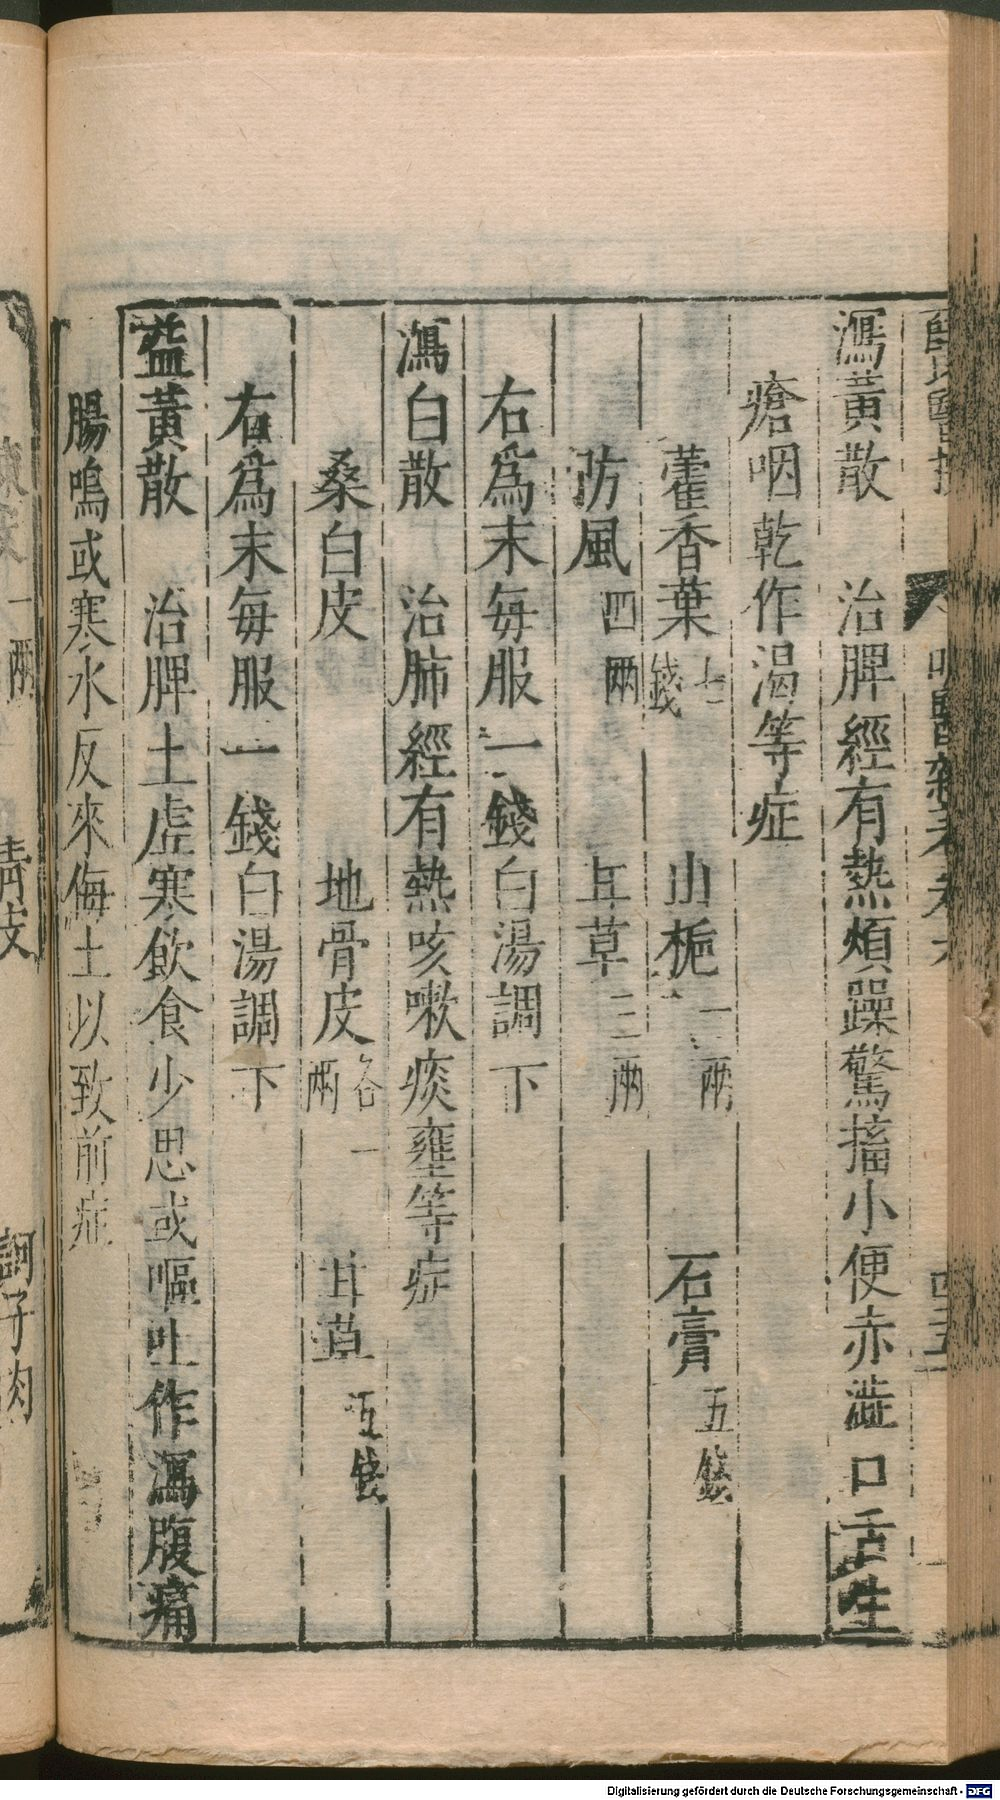 瀉黃散　治脾經有熱煩躁驚搐小便赤澁口舌生
瘡咽乾作渴等症
藿香葉七錢　山梔一兩　石膏五錢
防風四兩　甘草三兩
右爲末每服一錢白湯調下
瀉白散　治肺經有熱咳嗽痰壅等症
桑白皮　地骨皮各一兩　甘草五錢
右爲末每服一錢白湯調下
益黃散　治脾土虛寒飲食少思或嘔吐作瀉腹痛
腸鳴或寒水反來侮土以致前症
一兩　青皮　訶子肉
Digitalisierung gefördert durch die Deutsche Forschungsgemeinschaft - DFG